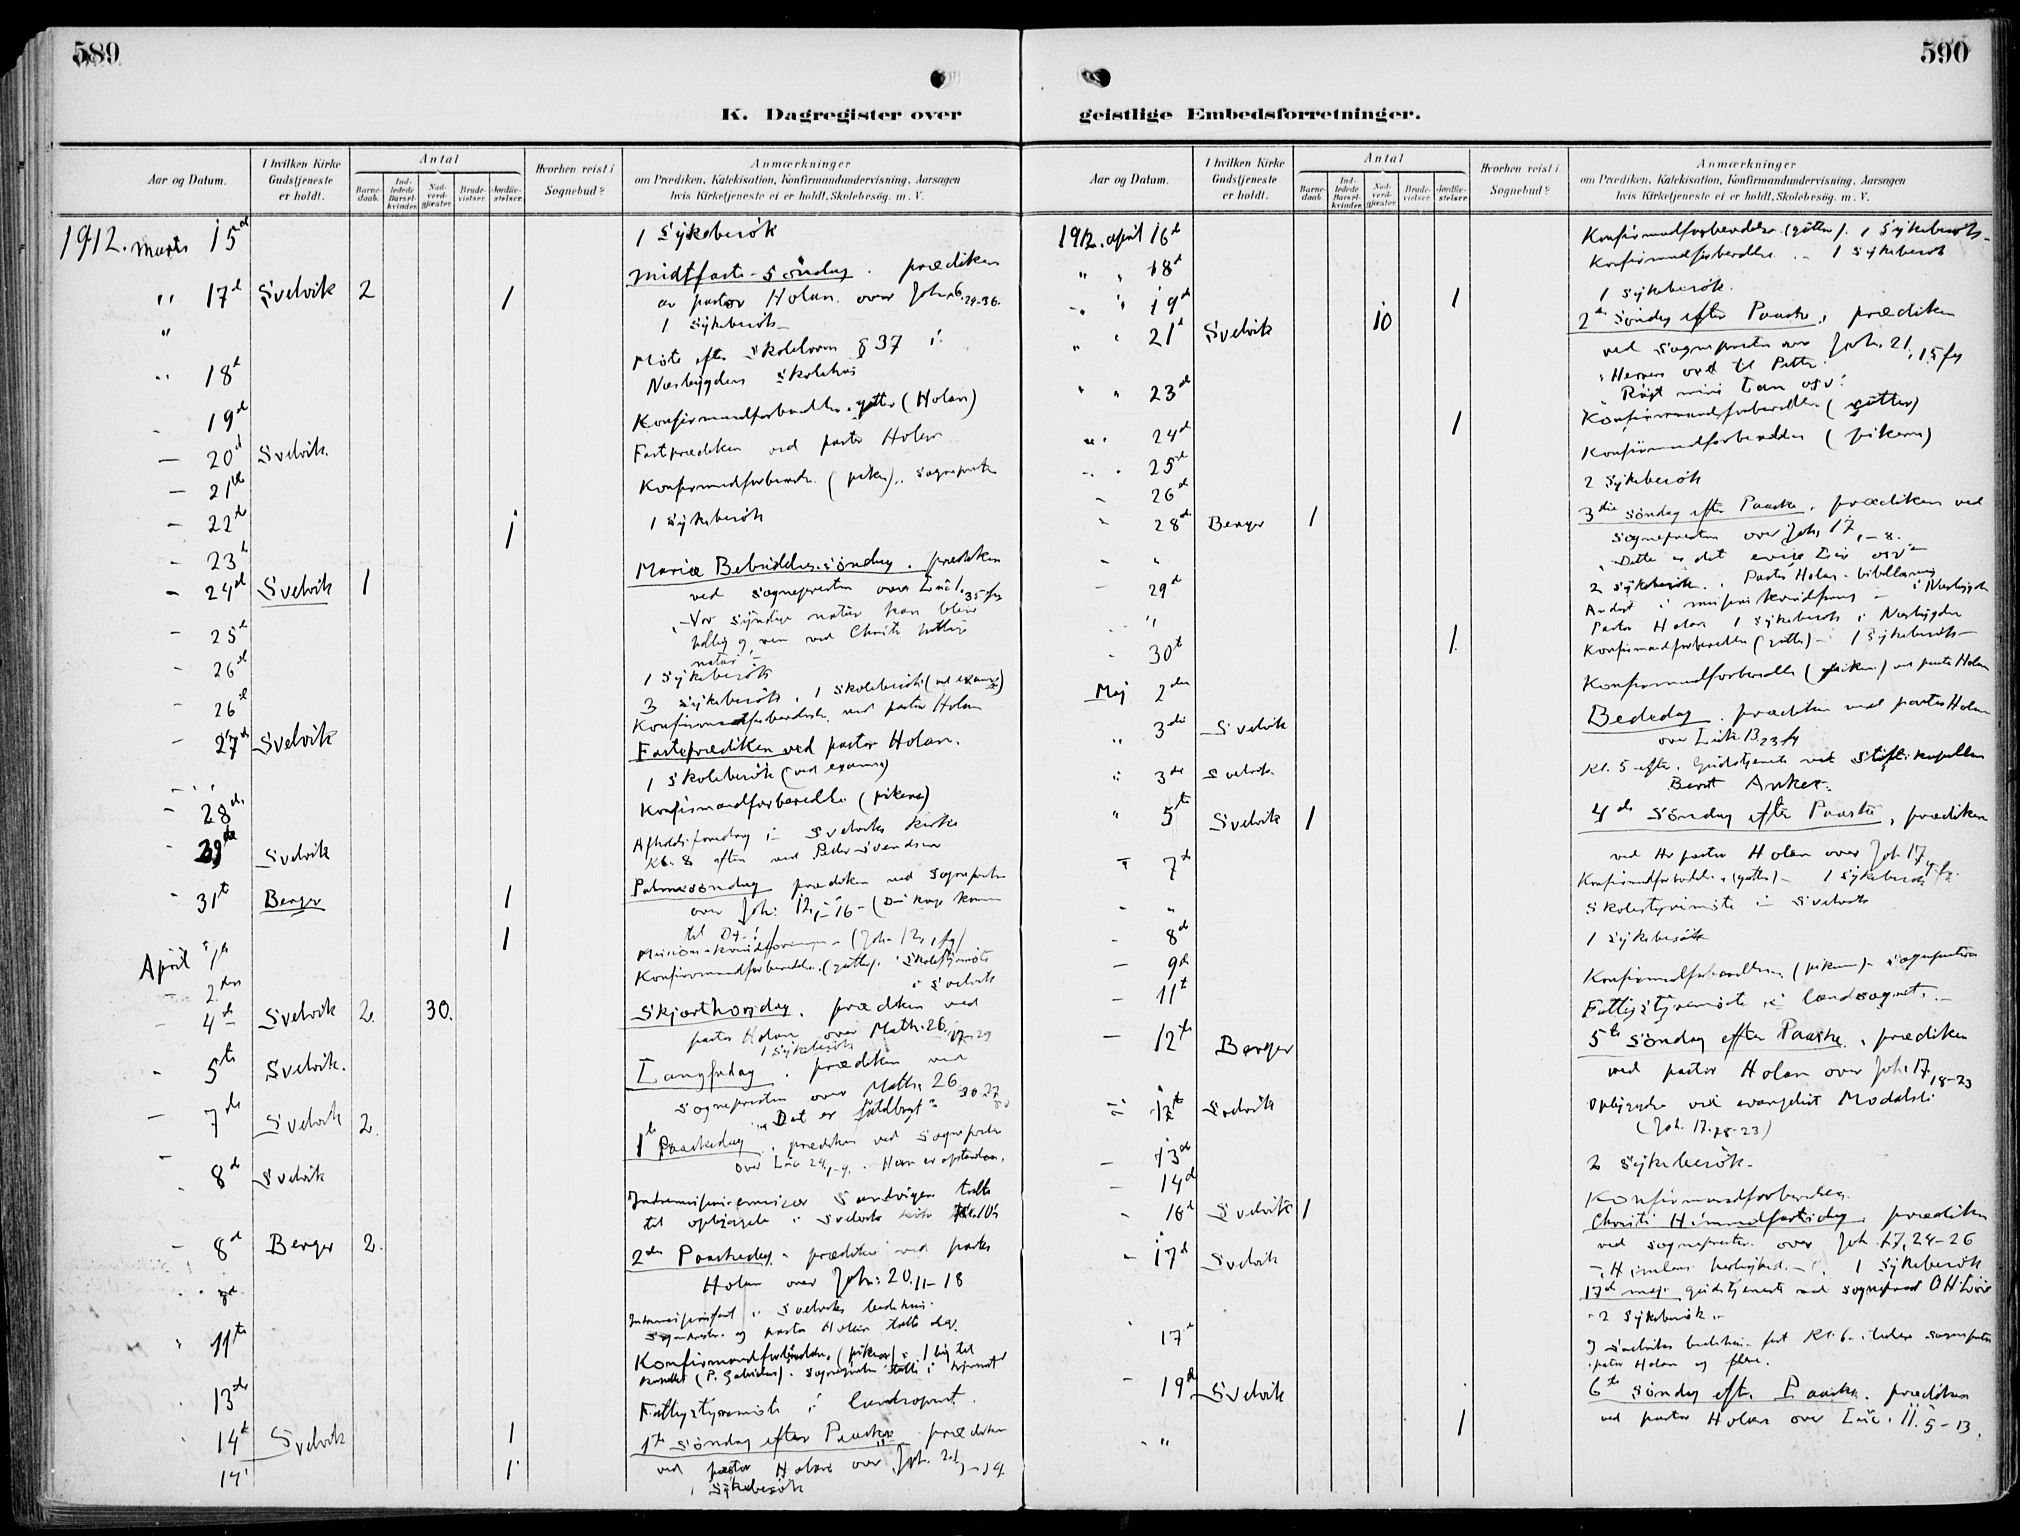 589
K. Dagregister over
Aar og Datum.
I hvilken Kirke Gudstjeneste er holdt.
Antal
Barne-daab.
Ind-ledede Barsel-kvinder.
Nad-verd-gjæster.
Brude-vielser.
Jordfæ-stelser.
Hvorhen reist i Sognebud?
Anmærkninger
om Prædiken, Katekisation, Konfirmandundervisning, Aarsagen
hvis Kirketjeneste ei er holdt, Skolebesøg. m. V.
1912. Marts 15d 1 Sykebesök
" 17d Svelvik 2 1 Midtfaste-Söndag. prædiken
av pastor Holan over Joh. 6, 24-36.
" 1 Sykebesök
" 18d Möte efter Skoleloven § 37 i
Nesbygdens Skolehus
19d Konfirmandforberedelse. gutter (Holan)
- 20d Svelvik. Fasteprædiken ved pastor Holan
- 21de Konfirmandforbered. (piker). Sognepresten
- 22de 1 1 Sykebesök
- 23d
- 24de Svelvik 1 Mariæ Bebudelses söndag. prædiken
ved sognepresten over Luc 1, 35 fg
Vor syndige natur kan blive
hellig og ren ved Christi hellige
natur
- 25d 1 Sykebesök
- 26de 3 Sykebesök, 1 Skolebesök (ved examen)
- 26d Konfirmandforberedelse ved pastor Holan
- 27d Svelvik Fasteprædiken ved pastor Holan.
1 Skolebesök (ved examen)
- 28de Konfirmandforberedelse (pikene)
Svelvik Afholdsforedrag i Svelviks kirke
Kl. 8 aften ved Peder Svendsen
31te Berger 1 Palmesöndag prædiken ved Sognepresten
over Joh. 12, 1-16 - (Din konge kommer
til Dig!)
April 1 Missions-kvindeforening - (Joh. 12, 1 fg)
2den Konfirmandforberedelse (gutter). Skolestyremöte
i Svelvik
- 4de Svelvik 2. 30. Skjærthorsdag. prædiken ved
pastor Holan over Math. 26, 17-29
1 Sykebesök
5te Svelvik. Langfredag. prædiken ved
Sognepresten over Math. 26
"Det er fuldbragt"
- 7de Svelvik 2. 1te Paaskedag. prædiken ved Sognepresten
over Luc 24, 1-9. Han er opstanden.
- 8d Svelvik Indremissionsemissær Sandvigen talte
til opbyggelse i Svelviks kirke
- 8d Berger 2. 2den Paaskedag. prædiken ved pastor
Holan over Joh: 20, 11-18
Svelviks bedehus.
og pastor Holan talte der.
11te Konfirmandforbered. (pikene).
13de Fattigstyremöte i landsognet.
14d Svelvik 1 1ste Söndag efter Paaske prædiken
ved pastor Holan over Joh. 21, 1-14
14' 1 1 Sykebesök
590
geistlige Embedsforretninger.
Aar og Datum.
I hvilken Kirke Gudstjeneste er holdt.
Antal
Barne-daab.
Ind-ledede Barsel-kvinder.
Nad-verd-gjæster.
Brude-vielser.
Jordfæ-stelser.
Hvorhen reist i Sognebud?
Anmærkninger
om Prædiken, Katekisation, Konfirmandundervisning, Aarsagen
hvis Kirketjeneste ei er holdt, Skolebesög. m. V.
1912. April 16d Konfirmandforberedelse (gutter). 1 Sykebesök-
" " 18d Konfirmandforberedelse. - 1 Sykebesök
" 19de 1 1 Sykebesök.
" " 21d Svelvik 10 2den Söndag efter Paaske, prædiken
ved Sognepresten over Joh. 21, 15 fg
Herrens ord til Peter
Rögt mine lam osv.
" " 23de Konfirmandforberedelse (gutter)
" 24de 1 Konfirmandforberedelse (pikene)
" 25de 2 Sykebesök
" 26d
" 28de Berger 1 3die Söndag efter Paaske, prædiken ved
Sognepresten over Joh. 17, 1-8.
"Dette er det evige Liv osv"
" 2 Sykebesök. Pastor Holan - bibellæsning
- 29d
i Nesbygden
" Pastor Holan 1 Sykebesök i Nesbygden
30te 1. Konfirmandforberedelse (gutter) - 1 Sykebesök-
Maj 2den Konfirmandforberedelse (piker) ved pastor Holan
" 3die Svelvik Bededag. prædiken ved pastor Holan
over Luk. 13, 23 fg
" 3de Svelvik Kl. 5 efter. Gudstjeneste ved Stiftskapellan
Bernt Anker.
" 5te Svelvik 1 4de Söndag efter Paaske, prædiken
ved Hr pastor Holan over Joh 17
- 7de Konfirmandforberedelse (gutter) - 1 Sykebesök
- " Skolestyremöte i Svelvik
- 8de 1 Sykebesök
- 9de Konfirmandforberedelse (pikene) - Sognepresten
- 11te Fattigstyremöte i landsognet. -
- 12te Berger 5te Söndag efter Paaske, prædiken
ved pastor Holan over Joh. 17, 18-23
12te Svelvik Opbyggelse ved evangelist Modalsli
(Joh. 17. 18-23)
- 13d 2 Sykebesök-
- 14d Konfirmandforberedelse.
- 16d Svelvik 1 Christi Himmelfartsdag. prædiken
ved sognepresten over Joh 17, 24-26
"Himlens herlighed - 1 Sykebesök
- 17d Svelvik 17d maj. gudstjeneste ved sogneprest
2 Sykebesök.
17d I Svelviks bedehus fest Kl. 6
pastor Holan og flere.
- 19de Svelvik 6te Söndag efter Paaske. prædiken
ved pastor Holan over Luc. 11. 5-13.
" 1